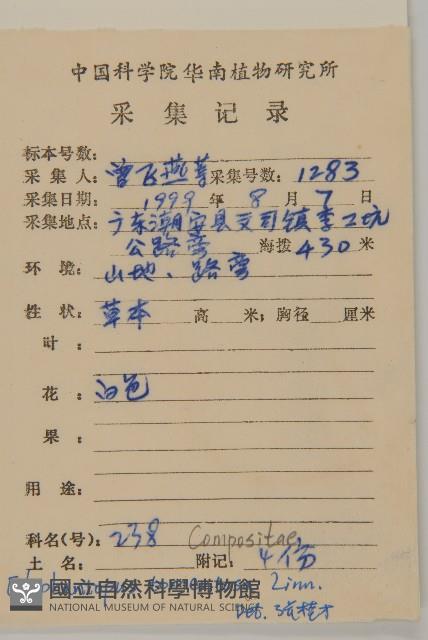 中国科学院华南植物研究所
采集记录
标本号数：
采集人：曾飞燕等 采集号数：1283
采集日期：1999年8月7日
采集地点：广东潮安县文司镇李工坑
公路旁 海拨430米
环境：山地、路旁
性状：草本 高 米；胸径 厘米
叶：
花：白色
果：
用途：
科名(号)：238 Compositae,
土名： 附记：4份
Linn.
國立自然科學博物館
NATIONAL MUSEUM OF NATURAL SCIENCE
Det.